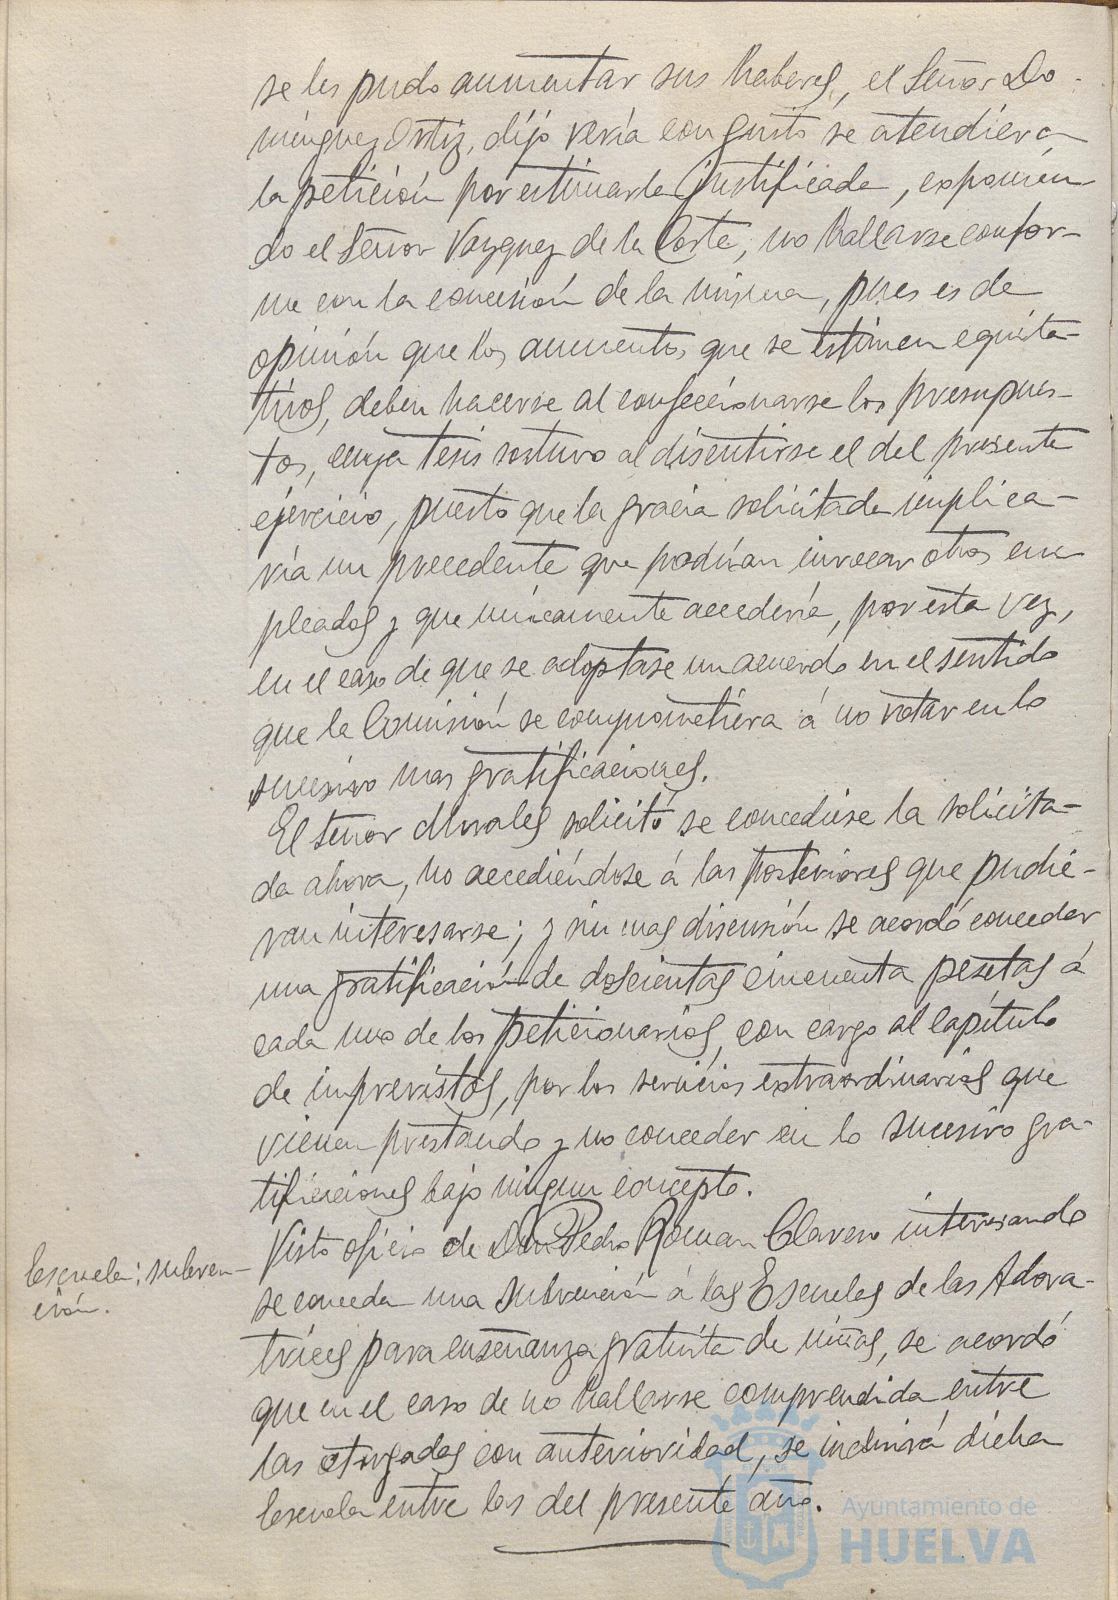 se les pudo aumentar sus haberes, el Señor Do-
minguez Ortiz, dijo vería con gusto se atendiera
la petición por estimarla justificada, exponien-
do el Señor Vazquez de la Corte, no hallarse confor-
me con la concesión de la misma, pues es de
opinión que los aumentos que se estimen equita-
tivos, deben hacerse al confeccionarse los presupues-
tos, cuya tesis sostuvo al discutirse el del presente
ejercicio, puesto que la gracia solicitada implica-
ría un precedente que podrían invocar otros em
pleados y que unicamente accedería, por esta vez,
en el caso de que se adoptase un acuerdo en el sentido
que la Comisión se comprometiera á no votar en lo
sucesivo mas gratificaciones.
El Señor Morales solicitó se concediese la solicita-
da ahora, no accediéndose á las posteriores que pudie-
ran interesarse; y sin mas discusión se acordó conceder
una gratificación de doscientas cincuenta pesetas á
cada uno de los peticionarios, con cargo al capítulo
de imprevistos, por los servicios extraordinarios que
vienen prestando y no conceder en lo sucesivo gra-
tificaciones bajo ningun concepto.
Escuela; subven-
ción.
Visto oficio de Don Pedro Roman Clavero interesando
se conceda una subvención á las Escuelas de las Adora-
trices para enseñanza gratuita de niñas, se acordó
que en el caso de no hallarse comprendida entre
las otorgadas con anterioridad, se incluirá dicha
Escuela entre las del presente año.
Ayuntamiento de
HUELVA